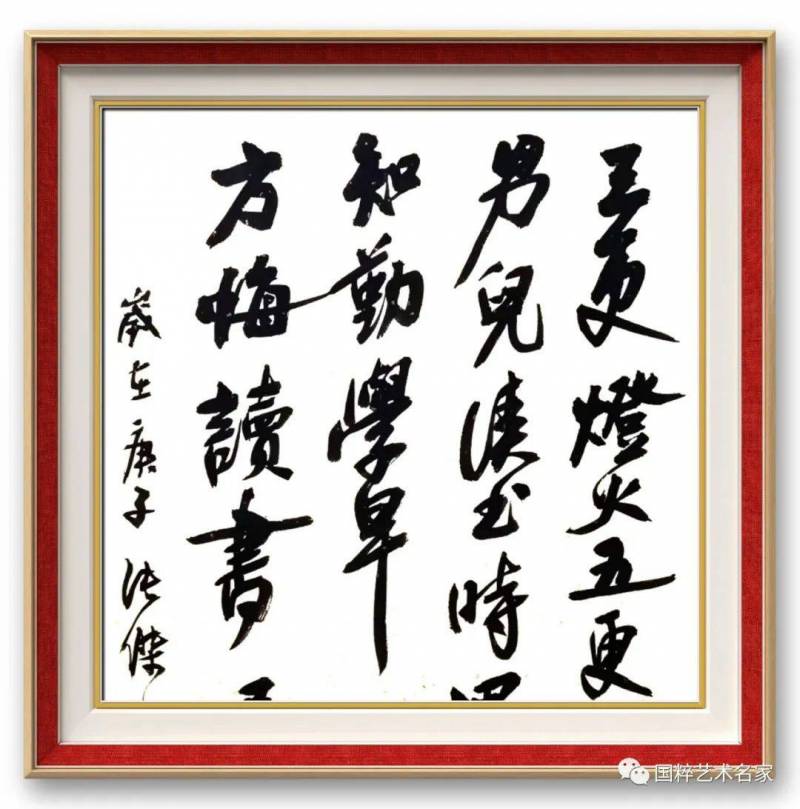 三更燈火五更
男兒读书時
知勤學早
方悔讀書
歲在庚子 张傑
国粹艺术名家